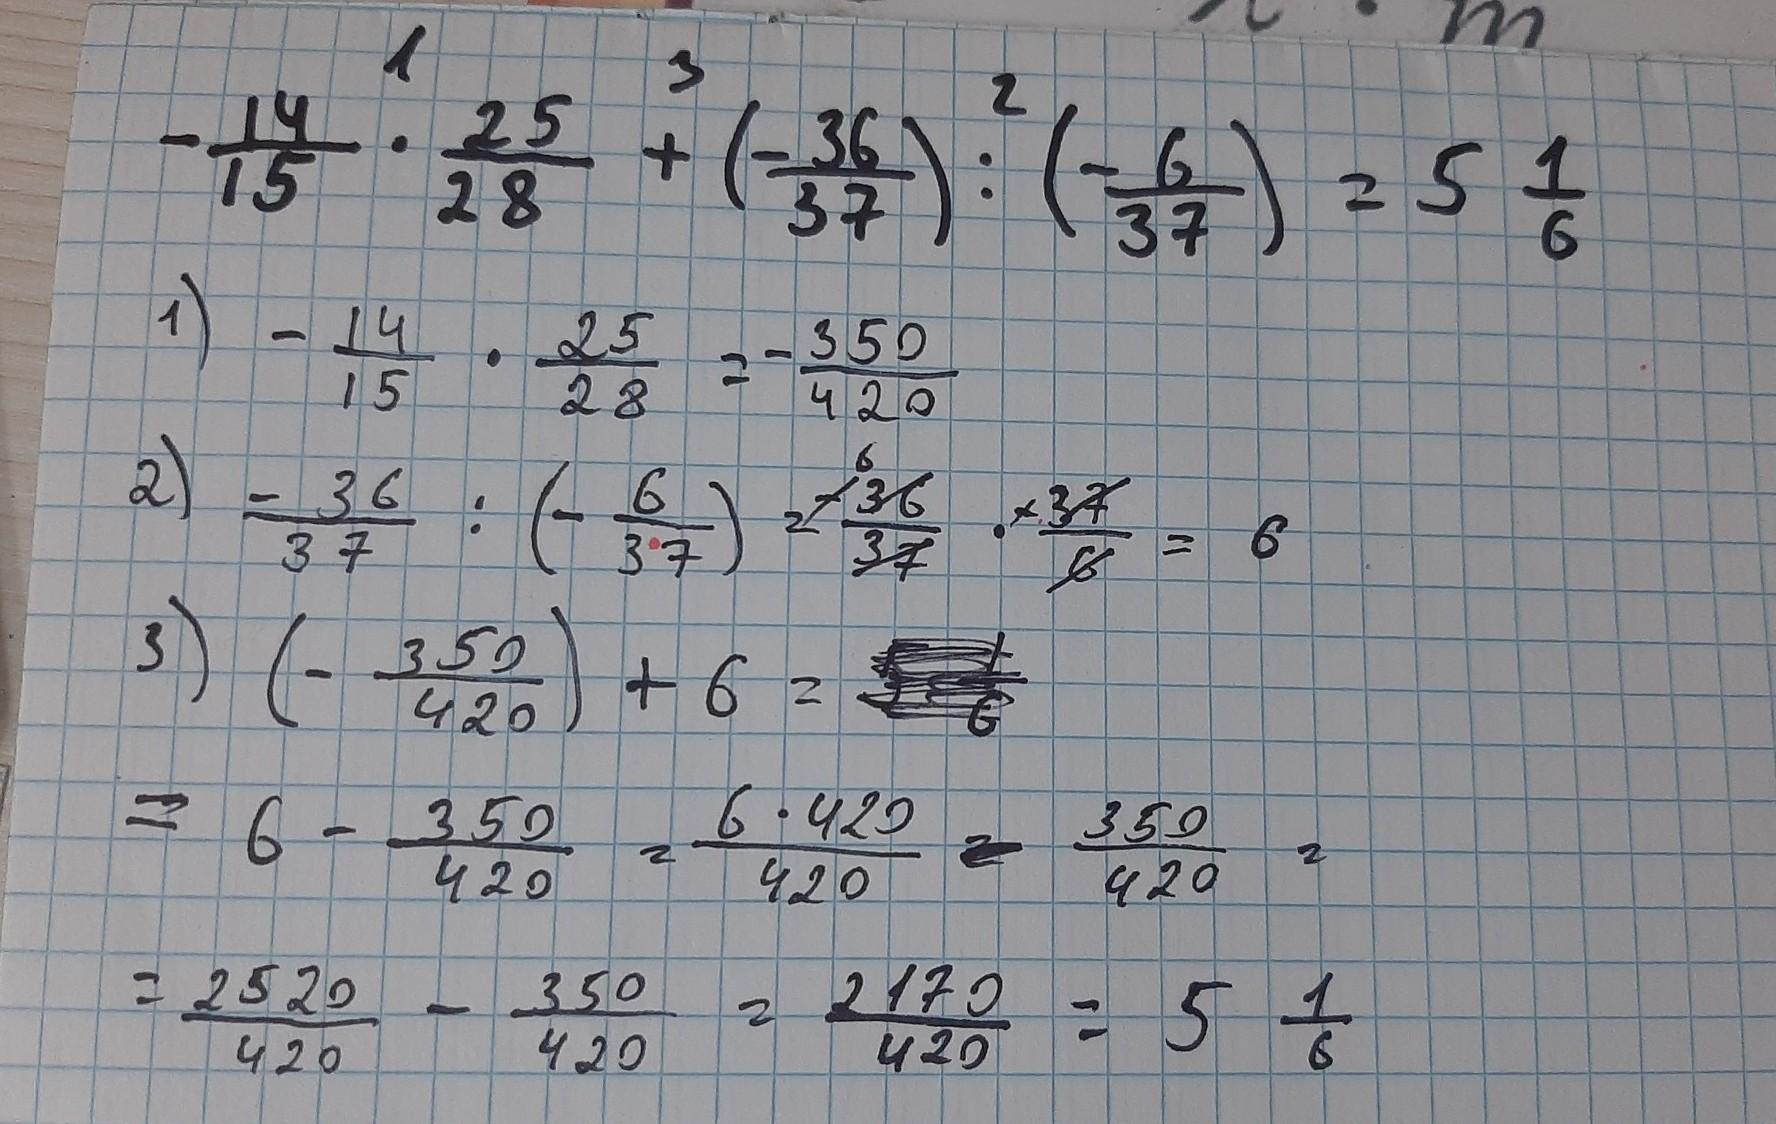 x · m
1 3 2
- 14/15 · 25/28 + (- 36/37) : (- 6/37) = 5 1/6
1) - 14/15 · 25/28 = - 350/420
2) - 36/37 : (- 6/37) = - 36/37 · 37/6 = 6
6
3) (- 350/420) + 6 =
= 6 - 350/420 = 6 · 420/420 - 350/420 =
= 2520/420 - 350/420 = 2170/420 = 5 1/6